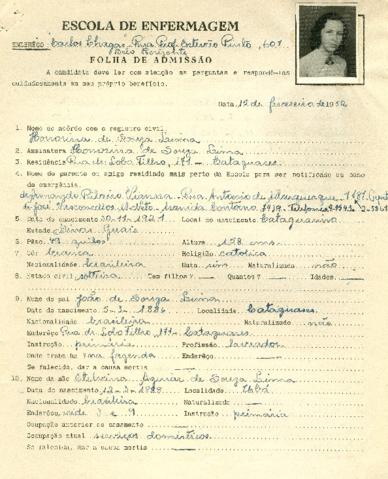 ESCOLA DE ENFERMAGEM
ENDEREÇO "Carlos Chagas" - Rua Prof. Estevão Pinto, 601
Belo Horizonte
FOLHA DE ADMISSÃO
A candidata deve ler com atenção as perguntas e respondê-las
cuidadosamente em seu próprio benefício.
Data, 12 de fevereiro de 1952
1. Nome de acordo com o registro civil.
Honorina de Souza Lima
2. Assinatura Honorina de Souza Lima
3. Residência Rua de. Lobo Filho, 177 - Cataguases
4. Nome do parente ou amigo residindo mais perto da Escola para ser notificado no caso
de emergência.
Rua Antonio de Albuquerque
5. Data do nascimento 20-11-1921 Local do nascimento Cataguarino
Estado Minas Gerais
6. Pêso 49 quilos Altura 158 cms.
7. Côr branca Religião católica
Nacionalidade brasileira Nata sim Naturalizada não
8. Estado civil solteira Tem filhos? Quantos? Idades
9. Nome do pai João de Souza Lima
Data do nascimento 5-2-1886 Localidade Cataguases
Nacionalidade brasileira Naturalizado não
Endereço Rua de. Lobo Filho, 177 - Cataguases
Instrução primária Profissão lavrador
Onde trabalha sua fazenda Endereço
Se falecido, dar a causa mortis
10. Nome da mãe de Souza Lima
Data do nascimento 12-3-1888 Localidade Ubá
Nacionalidade brasileira Naturalizada
Endereço vide 3 e 9 Instrução primária
Ocupação anterior ao casamento
Ocupação atual serviços domésticos
Se falecida, dar a causa mortis